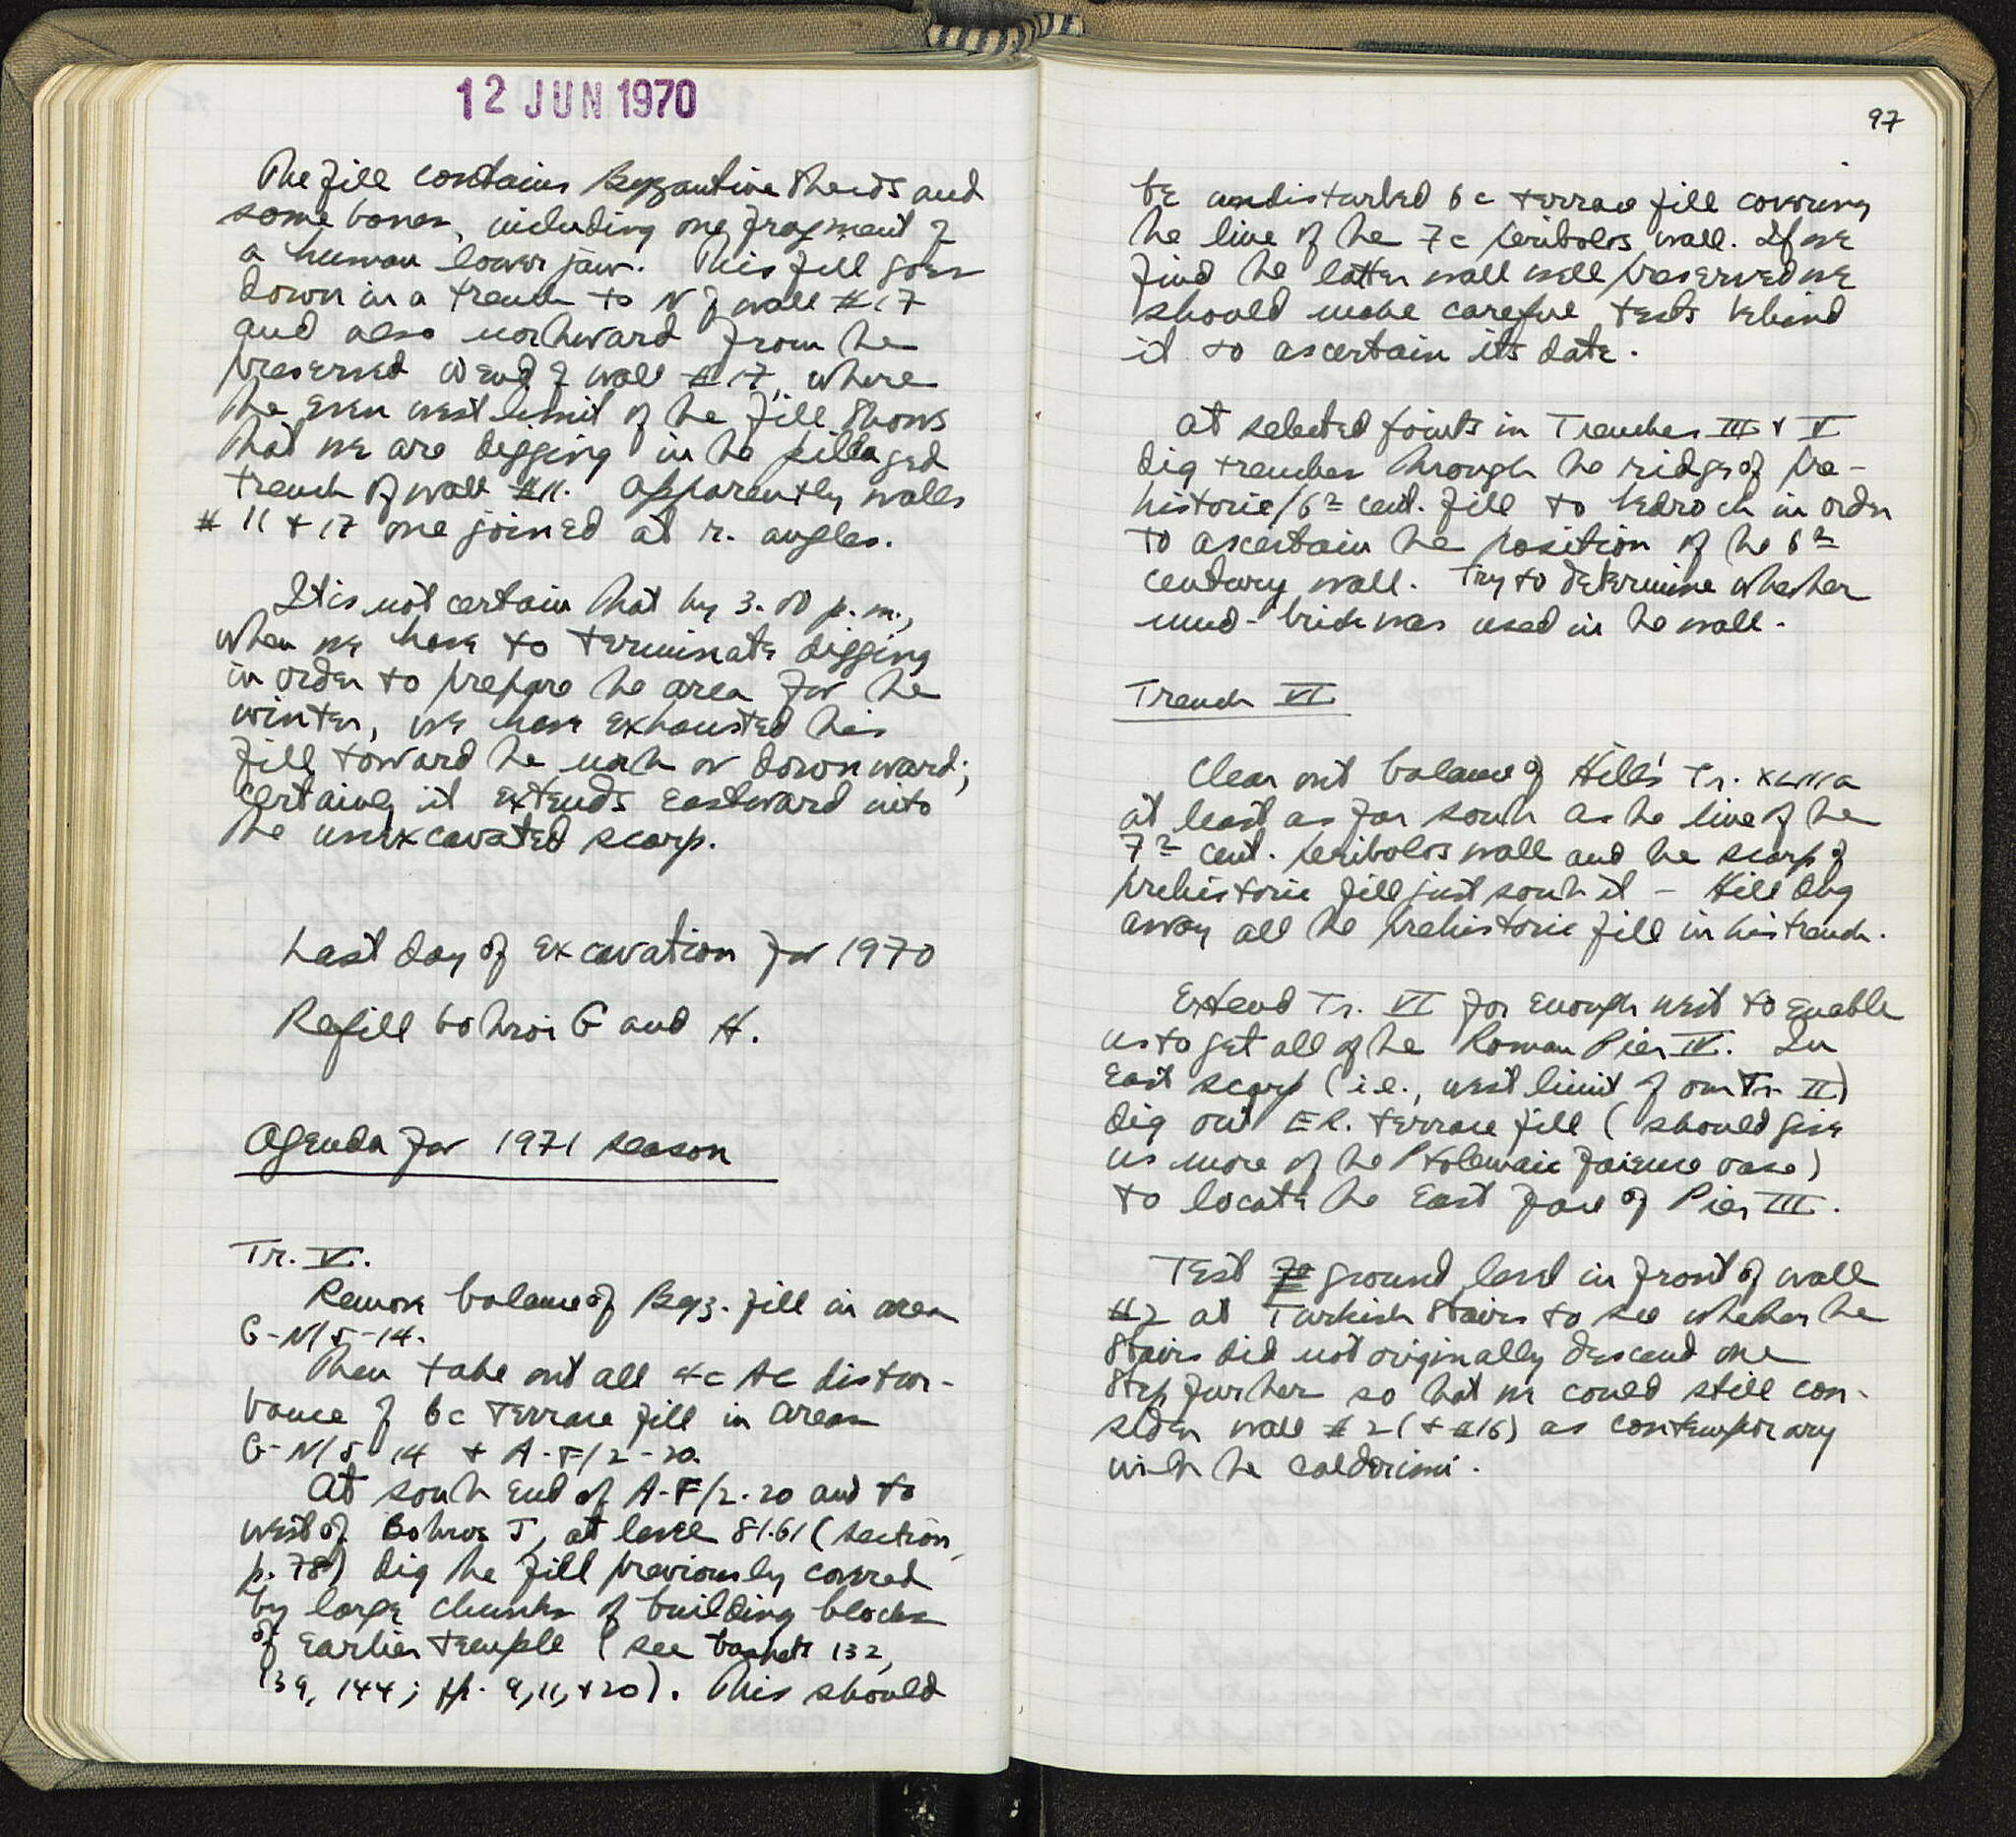 12 JUN 1970
The fill contains Byzantine sherds and
some bones, including one fragment of
a human lower jaw. This fill goes
down in a trench to N of wall #17
and also northward from the
preserved W end of wall #17, where
the even west limit of the fill shows
that we are digging in the pillaged
trench of wall #11. Apparently walls
# 11 + 17 once joined at r. angles.
It is not certain that by 3.00 p.m.,
when we have to terminate digging
in order to prepare the area for the
winter, we have exhausted this
fill toward the north or downward;
certainly it extends eastward into
the unexcavated scarp.
Last day of excavation for 1970
Refill bothroi G and H.
Agenda for 1971 season
Tr. V.
Remove balance of Byz. fill in area
G-N/5-14.
Then take out all 4c AC distur-
bance of 6c terrace fill in areas
G-N/5 14 + A-F/2-20.
At south end of A-F/2-20 and to
west of Bothros J, at level 81.61 (section,
p. 78) dig the fill previously covered
by large chunks of building blocks
of earlier temple (see baskets 132,
139, 144; pp. 9, 11, + 20). This should
97
be undisturbed 6c terrace fill covering
the line of the 7c peribolos wall. If we
find the latter wall well preserved we
should make careful tests behind
it to ascertain its date.
At selected points in Trenches III + V
dig trenches through the ridge of pre-
historic/6th cent. fill to bedrock in order
to ascertain the position of the 6th
century wall. Try to determine whether
mud-brick was used in the wall.
Trench VI
Clean out balance of Hill's Tr.
at least as far south as the line of the
7th cent. peribolos wall and the scarp of
prehistoric fill just south it - Hill dug
away all the prehistoric fill in his trench.
Extend Tr. VI far enough west to enable
us to get all of the Roman Pier IV. In
East scarp (i.e., west limit of our Tr. II)
dig out ER. terrace fill (should give
us more of the Ptolemaic faience vase)
to locate the East face of Pier III.
Test ground level in front of wall
#2 at Turkish stairs to see whether the
stairs did not originally descend one
step further so that we could still con-
sider wall #2 (+ #16) as contemporary
with the calderimi.